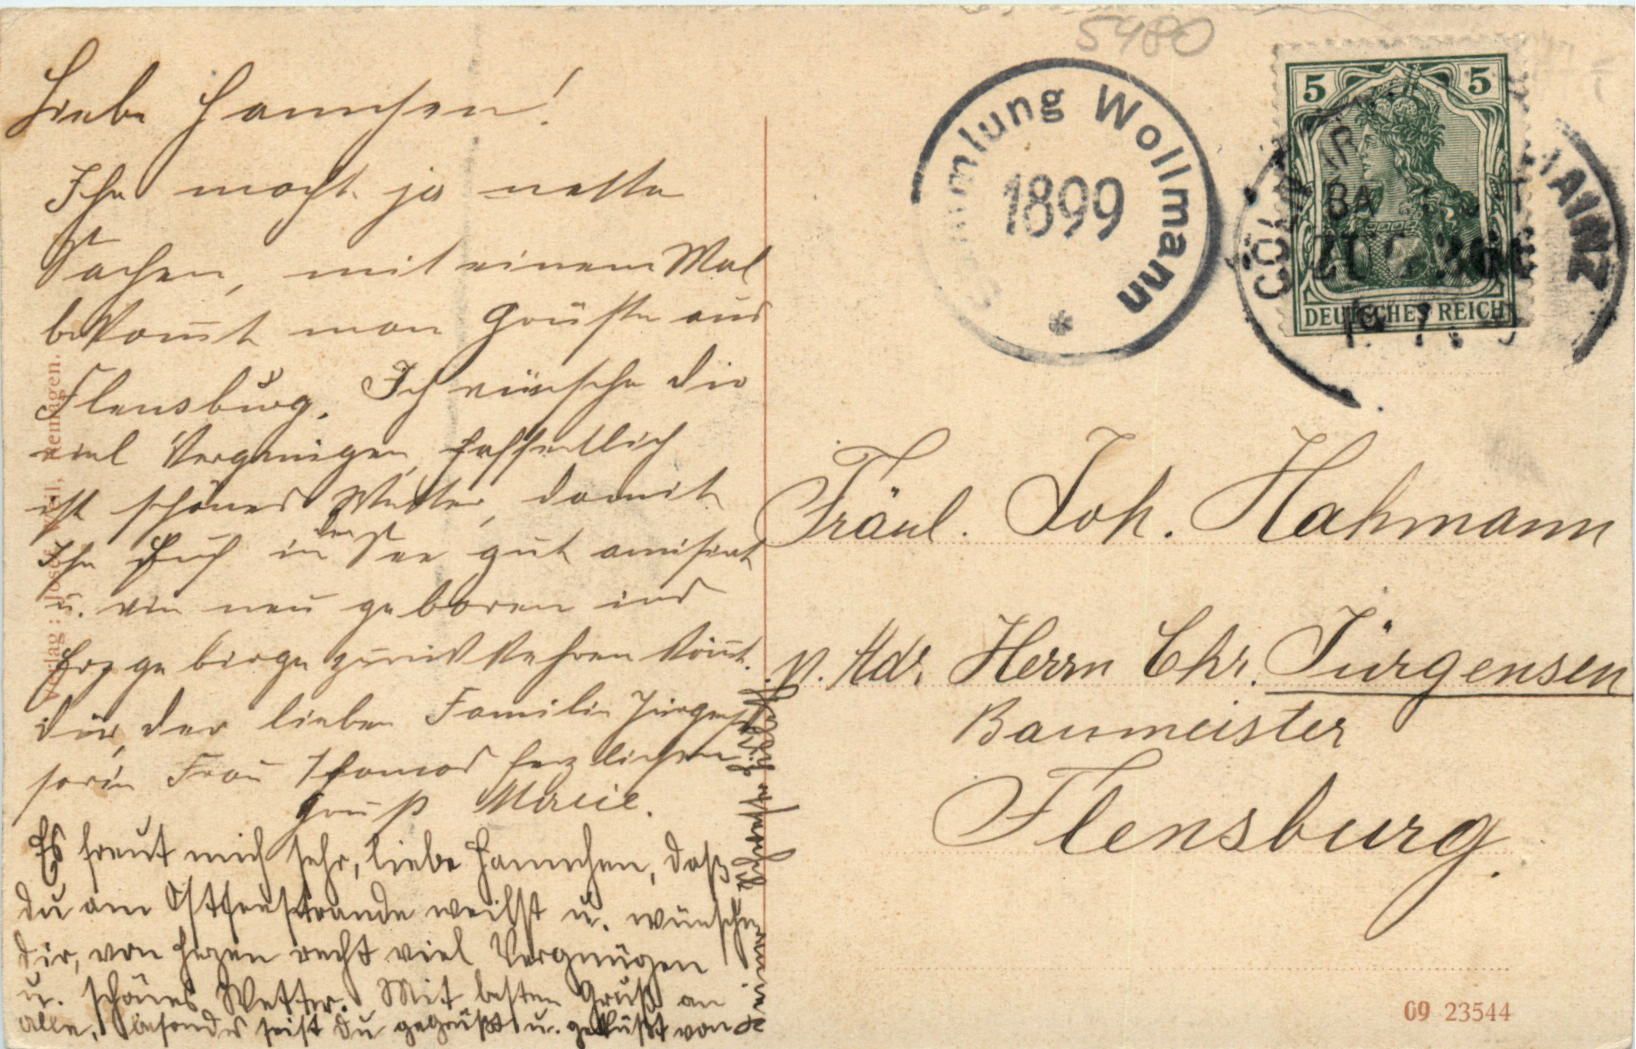 Liebe Hannchen!
Ihr macht ja nette
Sachen, mit einem Mal
bekommt man Grüße aus
Flensburg. Ich wünsche dir
viel Vergnügen, hoffentlich
ist schönes Wetter, damit
Ihr Euch in der See gut amüsirt
u. wie neu geboren ins
Erzgebirge zurückkehren könnt.
Dir, der lieben Familie Jürgensen
sowie Frau Thomas herzlichen
Gruß
Es freut mich sehr, liebe Hannchen, daß
du am Ostseestrande weilst u. wünsche
dir, von Herzen recht viel Vergnügen
u. schönes Wetter. Mit besten Gruß an
alle, besonders seist du gegrüßt u. geküßt von
Verlag: Josef
Sammlung Wollmann
1899
*
5480
5 5
DEUTSCHES REICH
CÖLN MAINZ
BA
ZUG
Fräul. Joh. Hahmann
p. Adr. Herrn Chr. Jürgensen
Baumeister
Flensburg.
09 23544